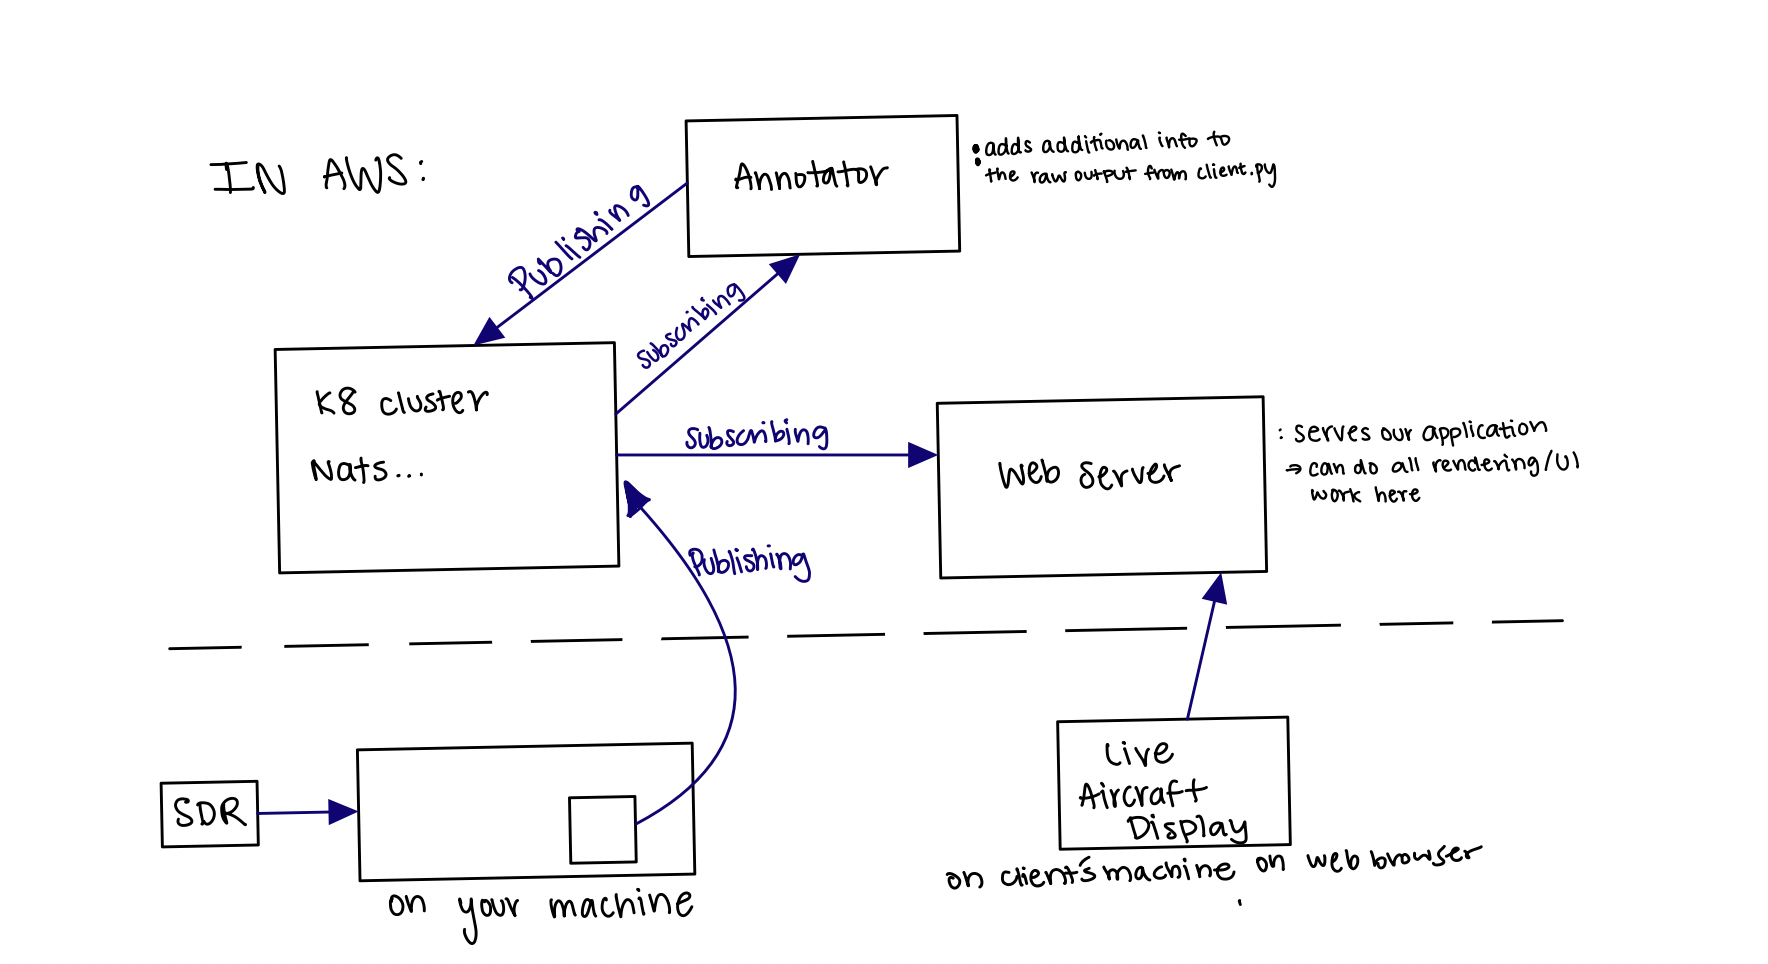 IN AWS:
Annotator
: adds additional info to
the raw output from client.py
Publishing
Subscribing
K8 cluster
Nats...
Subscribing
Web Server
: serves our application
→ can do all rendering/UI
work here
Publishing
SDR
on your machine
Live
Aircraft
Display
on client's machine on web browser